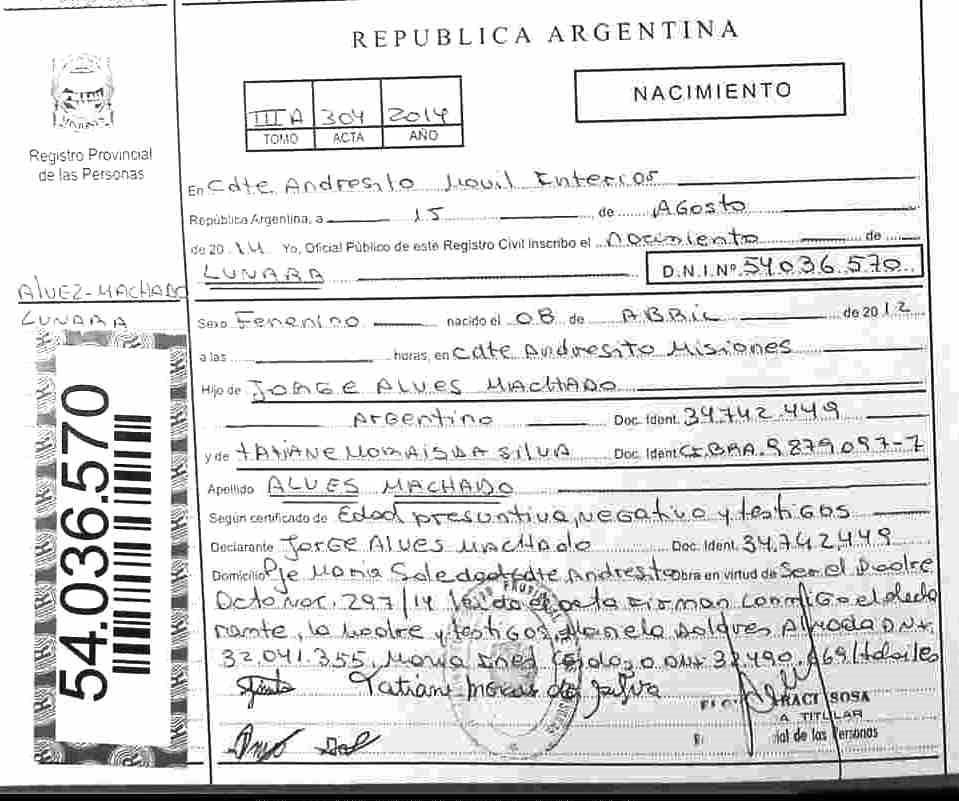 REPUBLICA ARGENTINA
NACIMIENTO
III A 304 2014
TOMO ACTA AÑO
Registro Provincial
de las Personas
En Cdte. Andresito Movil Interior
República Argentina, a 15 de Agosto
de 2014 Yo, Oficial Público de este Registro Civil inscribo el Nacimiento de
LUNARA D.N.I.Nº 54.036.570
ALVEZ-MACHADO
LUNARA
54.036.570
Sexo Femenino nacido el 08 de ABRIL de 2012
a las horas, en Cdte Andresito Misiones
Hijo de JORGE ALVES MACHADO
Argentino Doc. Ident. 34.742.449
y de TATIANE MORAIS DA SILVA Doc. Ident. CI.BRA. 9879097-7
Apellido ALVES MACHADO
Según certificado de Edad presuntiva, negativo y testigos
Declarante Jorge ALVES MACHADO Doc. Ident. 34.742.449
Domicilio Pje Maria Soledad Cdte Andresito obra en virtud de Ser el Padre
Dcto Nac. 297/14 leida el acta firman conmigo el decla
rante, la madre y testigos, DNI.
32.041.355, Maria Ines DNI 32.490.
Tatiane morais da Silva
SOSA
TITULAR
de las Personas